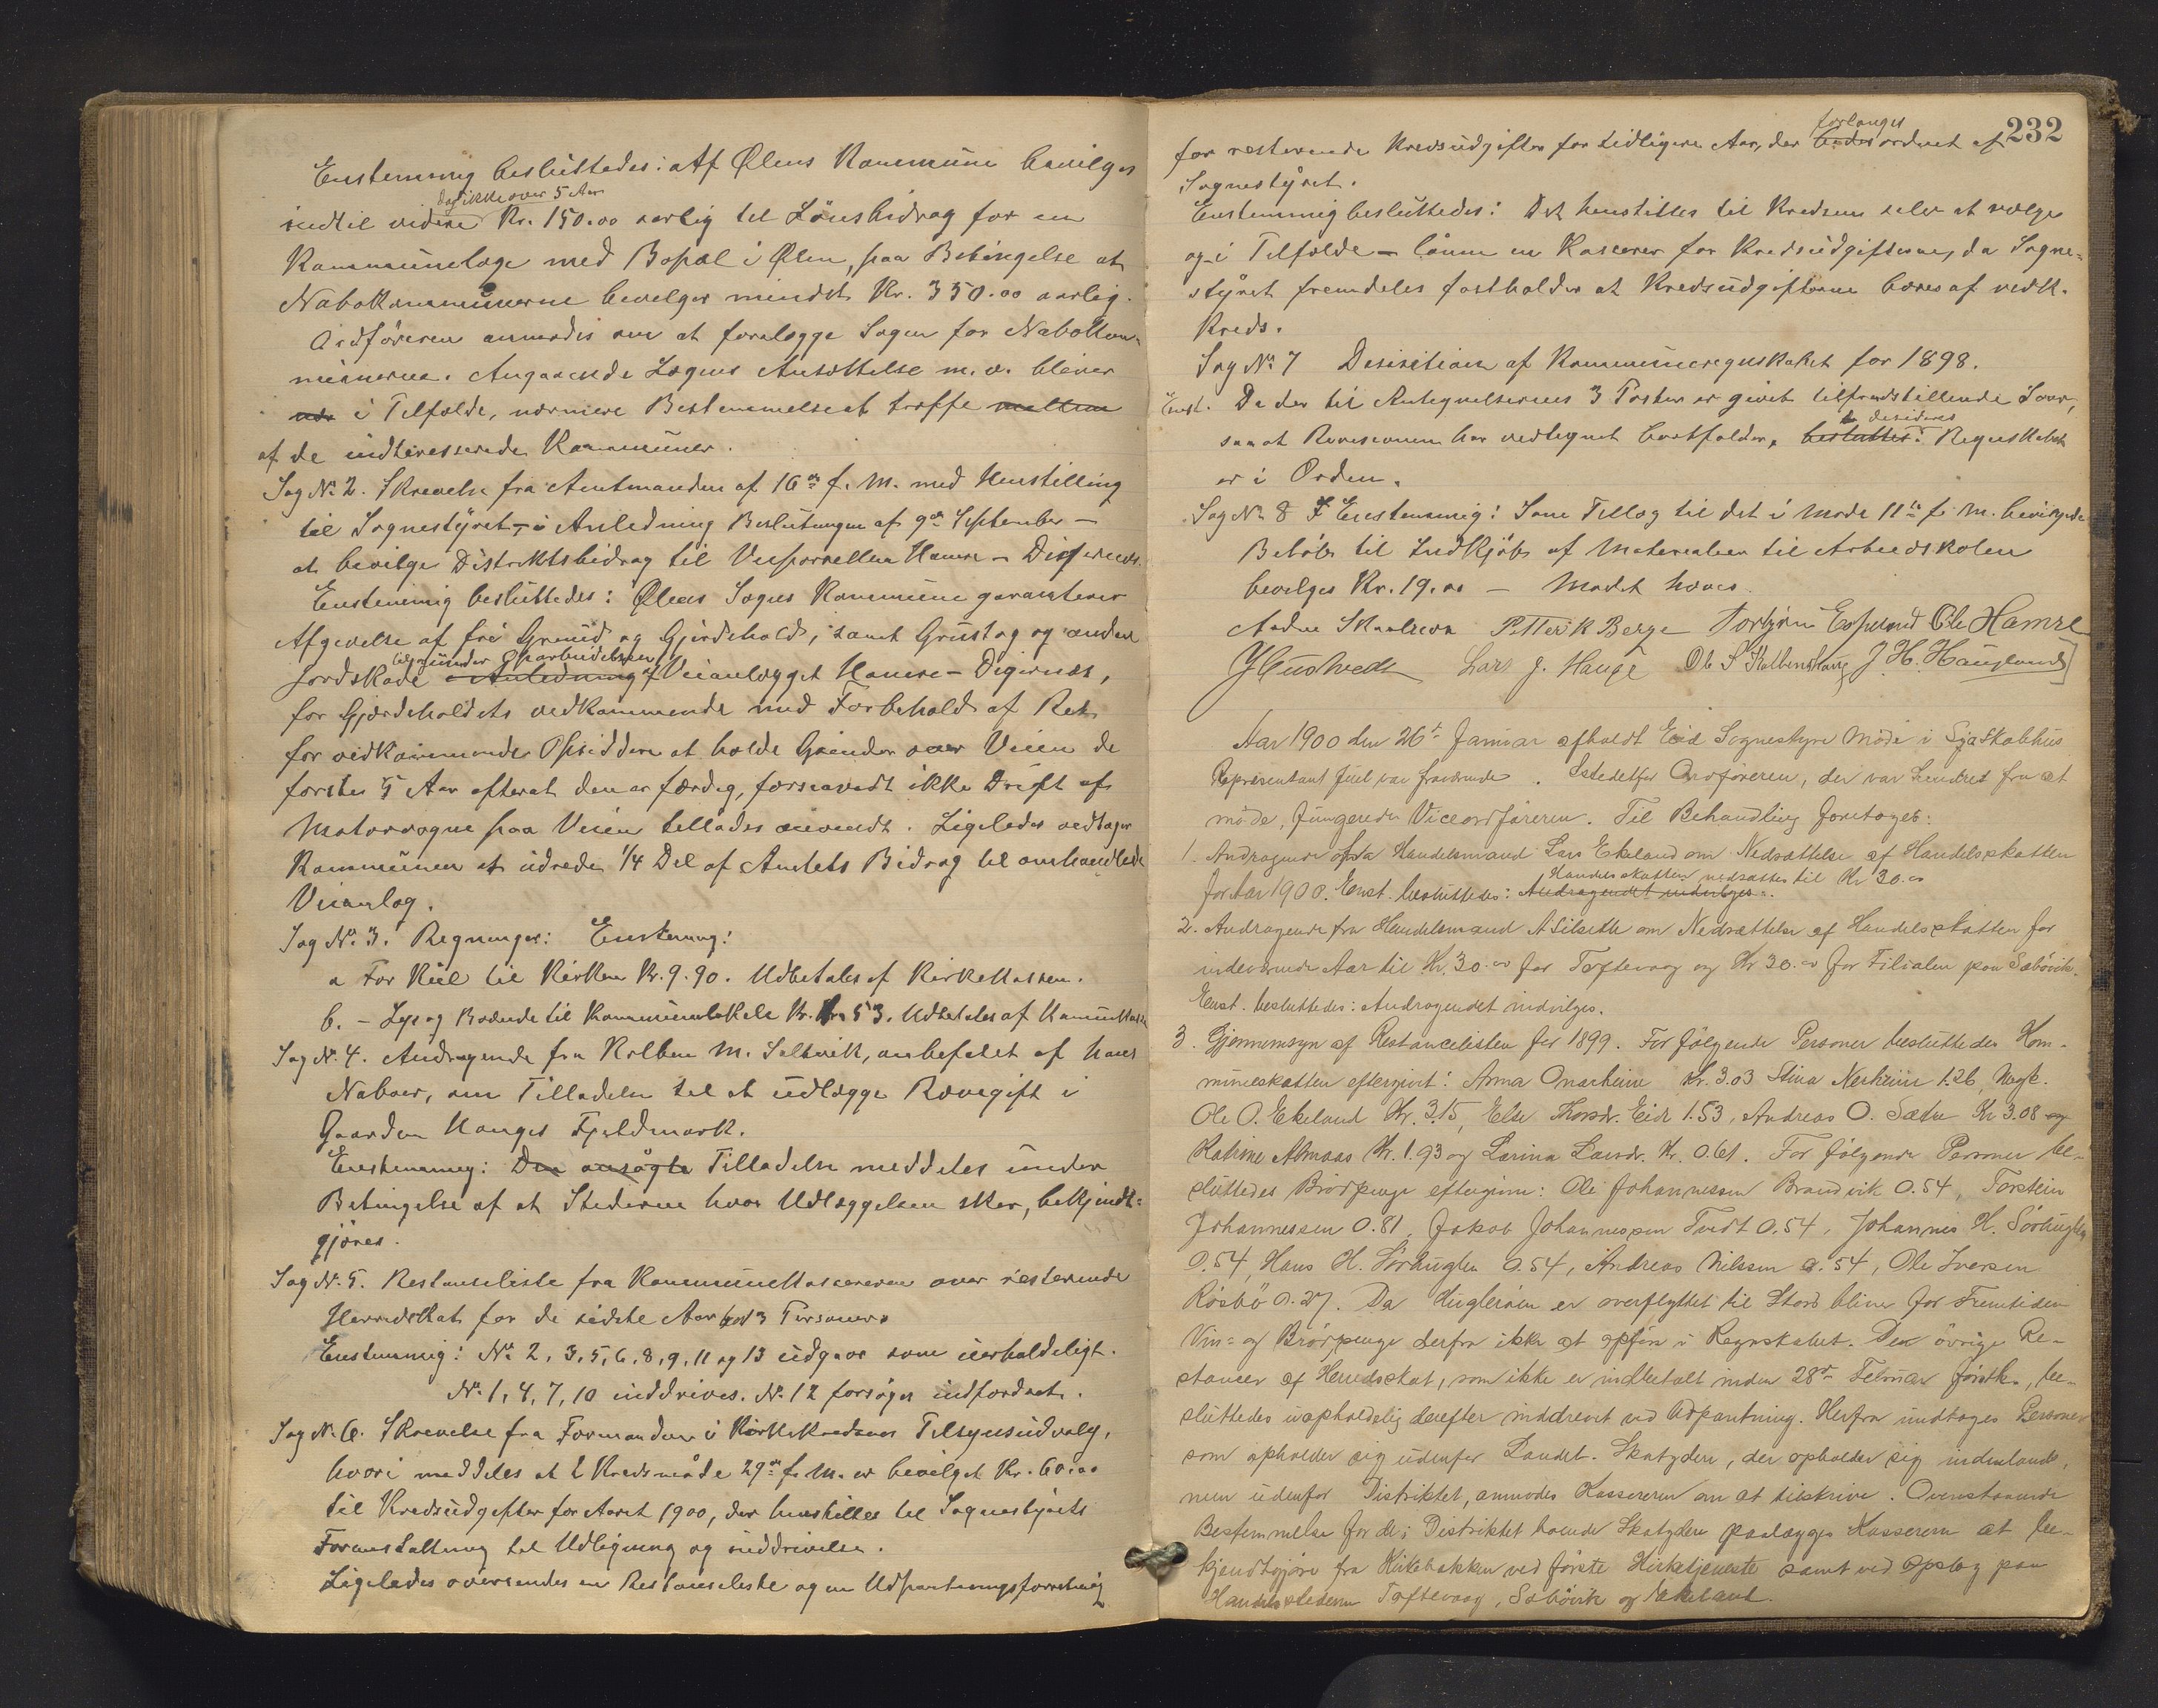 Enstemmig besluttedes: Af Ølens Kommune bevilges
dog ikke over 5 Aar
indtil videre Kr. 150.00 aarlig til Lönsbidrag for en
Kommunelæge med Bopæl i Ølen, paa Betingelse at
Nabokommunerne bevelger mindst Kr. 350.00 aarlig.
Ordføreren anmodes om at forelægge Sagen for Nabokom-
munerne. Angaaende Lægens Ansættelse m.v. bliver
i Tilfælde, nærmere Bestemmelse at træffe mellem
af de indteresserede Kommuner.
Sag No 2. Skrivelse fra Amtmanden af 16de f. M. med Henstilling
til Sognestyret – i Anledning Beslutningen af 9de September –
at bevilge Distriktsbidrag til Veiparcellen Hamre –
Enstemmig besluttedes: Ølens Sogns Kommune garanterer
Afgivelse af fri Grund og Gjerdehold, samt Grustag og anden
under Oparbeidelsen
Jordskade i Anledning af Veianlægget Hamre – Digernæs,
for Gjerdeholdets vedkommende med Forbehold af Ret
for vedkommende Opsiddere at holde Grinder over Veien de
første 5 Aar efterat den er færdig, forsaavidt ikke Drift af
Motorvogne paa Veien tillades anvendt. Ligeledes vedtager
Kommunen at udrede 1/4 Del af Amtets Bidrag til omhandlede
Veianlæg.
Sag No 3. Regninger: Enstemmig:
a For Kul til Kirken Kr. 9.90. Udbetales af Kirkekassen.
b. – Lys og Brænde til Kommunelokale Kr. 53. Udbetales af
Sag No. 4. Andragende fra Kolben M. Saltvik, anbefalet af hans
Naboer, om Tilladelse til at udlægge Rævegift i
Gaarden Hauges Fjeldmark.
Enstemmig: Den ansögte Tilladelse meddeles under
Betingelse af at Stederne hvor Udlæggelsen sker, bekjendt-
gjöres.
Sag No. 5. Restanseliste fra Kommunekassereren over resterende
Herredskat for de sidste Aar hos 13 Personer.
Enstemmig: No 2, 3, 5, 6, 8, 9, 11 og 13 udgaar som uerholdeligt.
No 1, 4, 7, 10 inddrives. No. 12 forsøges indfordret.
Sag No. 6. Skrivelse fra Formanden i Kirkekredsens Tilsynsudvalg,
hvori meddeles at i Kredsmøde 29de f. M. er bevilget Kr. 60.00
til Kredsudgifter for Aaret 1900, der henstilles til Sognestyrets
Foranstaltning til Udligning og inddrivelse.
Ligeledes oversendes en Restanseliste og en Udpantningsforretning
232
forlanges
for resterende Kredsudgifter for tidligere Aar, der bedes ordnet af
Sognestyret.
Enstemmig besluttedes: Det henstilles til Kredsen selv at vælge
og – i Tilfælde – lönne en Kasserer for Kredsudgifterne, da Sogne-
styret fremdeles fastholder at Kredsudgifterne bæres af vedk.
Kreds.
Sag No 7 Desisition af Kommuneregnskabet for 1898.
Enst. Da der til Antegnelsernes 3 Poster er givet tilfredstillende Svar,
desideres
saa at Revisionen har vedtegnet bortfalder, besluttes: Regnskabet
er i Orden.
Sag No 8 Enstemmig: Som Tillæg til det i Møde 11te f. M. bevilgede
Beløb til Indkjöb af Materialier til Arbeidskolen
bevilges Kr. 19.00 – Mødet hæves.
Anders Skaalnes Petter K Berge Torbjörn Espeland Ole Hamre
Lars J. Hauge Ole S J. H. Haugland
Aar 1900 den 26de Januar afholdt Eid Sognestyre Möde i Sjøskabhus
Repræsentant Juel var fraværende. Istedetfor Ordføreren, der var hindret fra at
möde, fungerede Viceordføreren. Til Behandling foretoges:
1. Andragende fra Handelsmand Lars Ekeland om Nedsættelse af Handelsskatten
Handelsskatten nedsættes til Kr 30.00
for Aar 1900. Enst. besluttedes: Andragendet indvilges.
2. Andragende fra Handelsmand A Silseth om Nedsættelse af Handelsskatten for
indeværende Aar til Kr. 30.00 for Toftevaag og Kr 30.00 for Filialen paa Sæbövik.
Enst. besluttedes: Andragendet indvilges.
3. Gjennemsyn af Restancelisten for 1899. For fölgende Personer besluttedes Kom-
muneskatten eftergivet: Anna Onarheim Kr. 3.03 Stina Nerheim 1.26,
Ole O. Ekeland Kr. 3.15, Else Thorsdr. Eide 1.53, Andreas O. Sætre Kr 3.08 og
Katrine Almaas Kr. 1.93 og Larina Larsdr. Kr. 0.61. For fölgende Personer be-
sluttedes Brödpenge eftergivne: Ole Johannessen Brandvik 0.54, Torstein
Johannessen 0.81, Jakob Johannessen Tvedt 0.54, Johannes H. Sörhuglen
0.54, Hans H. Sörhuglen 0.54, Andreas Nilssen 0.54, Ole Iversen
Rösbö 0.27. Da Hugleröen er overflyttet til Stord bliver for Fremtiden
Vin- og Brödpenge derfra ikke at opføre i Regnskabet. Den övrige Re-
stancer af Herredsskat, som ikke er indbetalt inden 28de Februar förstk., be-
sluttedes uopholdelig derefter inddrevet ved Udpantning. Herfra undtages Personer
som opholder sig udenfor Landet. Skatydere, der opholder sig indenlands,
men udenfor Distriktet, anmodes Kassereren om at tilskrive. Ovenstaaende
Bestemmelse for de i Distriktet boende Skatydere paalægges Kassereren at be-
kjendtgjöre fra Kirkebakken ved förste Kirketjeneste samt ved Opslag paa
Handelsstederne Toftevaag, Sæbövik og Ekeland.